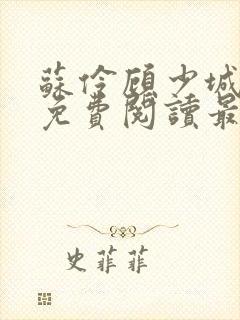 蘇伶顧少城
免費閱讀最
史菲菲